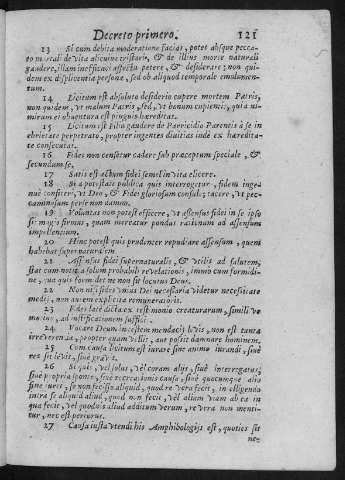 Decreto primero. 121
13 Si cum debita moderatione facias, potes absque pecca-
to mortali de vita alicuius tristari, & de illius morte naturali
gaudere, illam inefficaci affectu petere, & desiderare; non qui-
dem ex displicentia personæ, sed ob aliquod temporale emolumen-
tum.
14 Licitum est absoluto desiderio cupere mortem Patris,
non quidem, ut malum Patris, sed, ut bonum cupientis, quia ni-
mirum ei obuentura est pinguis hæreditas.
15 Licitum est filio gaudere de Parricidio Parentis à se in
ebrietate perpetrato, propter ingentes diuitias inde ex hæredita-
te consecutas.
16 Fides non censetur cadere sub præceptum speciale, &
secundum se.
17 Satis est actum fidei semel in vita elicere.
18 Si a potestate publica quis interrogetur, fidem inge-
nuè confiteri, vt Deo, & Fidei gloriosum consulo; tacere, vt pec-
caminosum per se non damno.
19 Voluntas non potest efficere, vt assensus fidei in se ipso
sit magis firmus, quam mereatur pondus rationum ad assensum
impellentium.
20 Hinc potest quis prudenter repudiare assensum, quem
habebat supernaturalem
21 Assensus fidei supernaturalis, & vtilis ad salutem,
stat cum notitia solum probabili revelationis, immo cum formidi-
ne, qua quis formidet ne non sit locutus Deus.
22 Non nisi fides vnius Dei necessaria videtur necessitate
medij, non autem explicita remuneratoris.
23 Fides latè dicta ex testimonio creaturarum, simili vè
motiuo, ad iustificationem sufficit.
24 Vocare Deum in testem mendacij levis, non est tanta
irreverentia, propter quam vellit, aut possit damnare hominem.
25 Cum causa licitum est iurare sine animo iurandi, siuè
res sit levis, siuè gravis.
26 Si quis, vel solus, vel coram alijs, siuè interrogatus,
siuè propria sponte, siuè recreationis causa, siuè quocumque alio
fine iuret, se non fecisse aliquid, quod re vera fecit, intelligendo
intra se aliquid aliud, quod non fecit, vel aliam viam ab ea in
qua fecit, vel quodvis aliud additum verum, re vera non menti-
tur, nec est periurus.
27 Causa iusta vtendi his Amphibologijs est, quoties sit
ne-